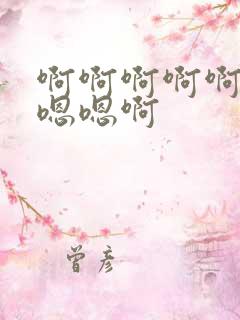 啊啊啊啊啊
嗯嗯啊
曾彦